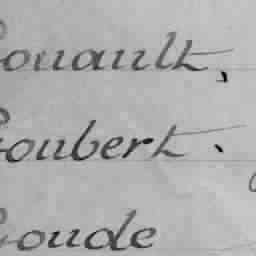 ouault,
oubert.
oude